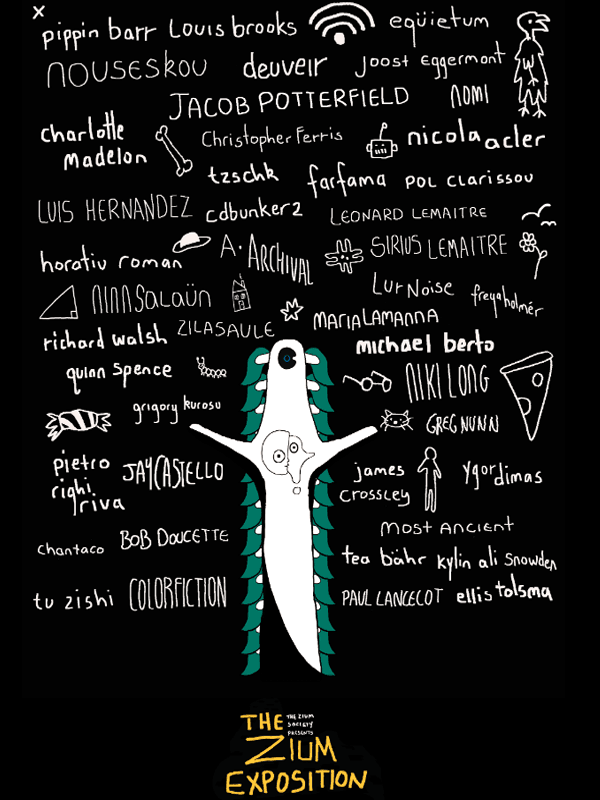 x
pippin barr Louis brooks eqüietum
nouseskou deuveir Joost Eggermont
JACOB POTTERFIELD nomi
charlotte madelon Christopher Ferris nicola acler
tzschk farfama pol clarissou
LUIS HERNANDEZ cdbunker2 LEONARD LEMAITRE
horatiu roman A. ARCHIVAL SIRIUS LEMAITRE
NINA Salaün Lur Noise freya holmér
richard walsh ZILASAULE MARIA LAMANNA
michael berto
quinn spence NIKI LONG
grigory kurosu GREG NUNN
pietro righi riva JAY CASTELLO james crossley ygor dimas
MOST ANCIENT
chantaco BOB DOUCETTE tea bähr kylin ali snowden
tu zishi COLORFICTION PAUL LANCELOT ellis tolsma
THE ZIUM SOCIETY PRESENTS
THE
ZIUM
EXPOSITION